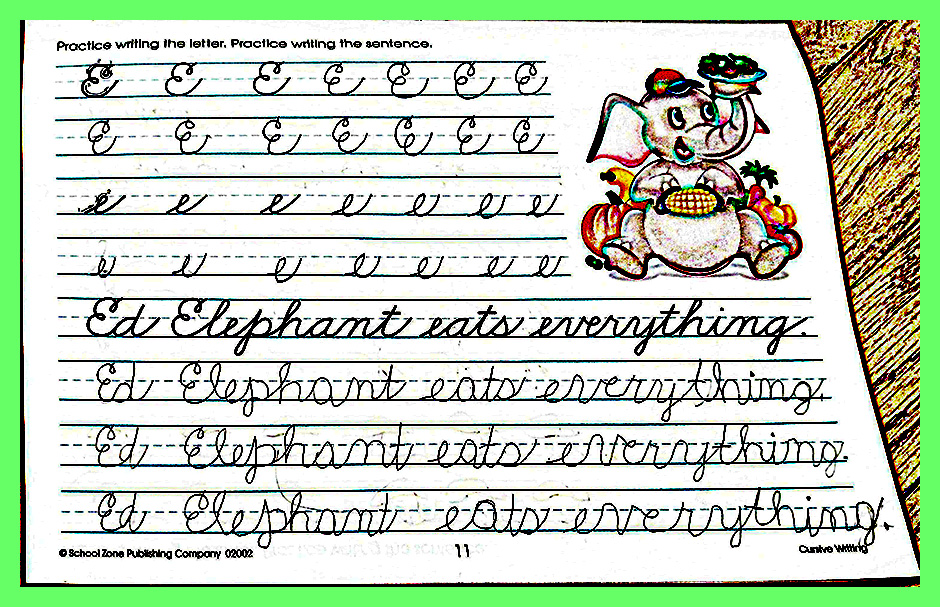 Practice writing the letter. Practice writing the sentence.
E E E E E E E
E E E E E E E
e e e e e e e
e e e e e e e
Ed Elephant eats everything.
Ed Elephant eats everything.
Ed Elephant eats everything.
Ed Elephant eats everything.
© School Zone Publishing Company 02002 11 Cursive Writing